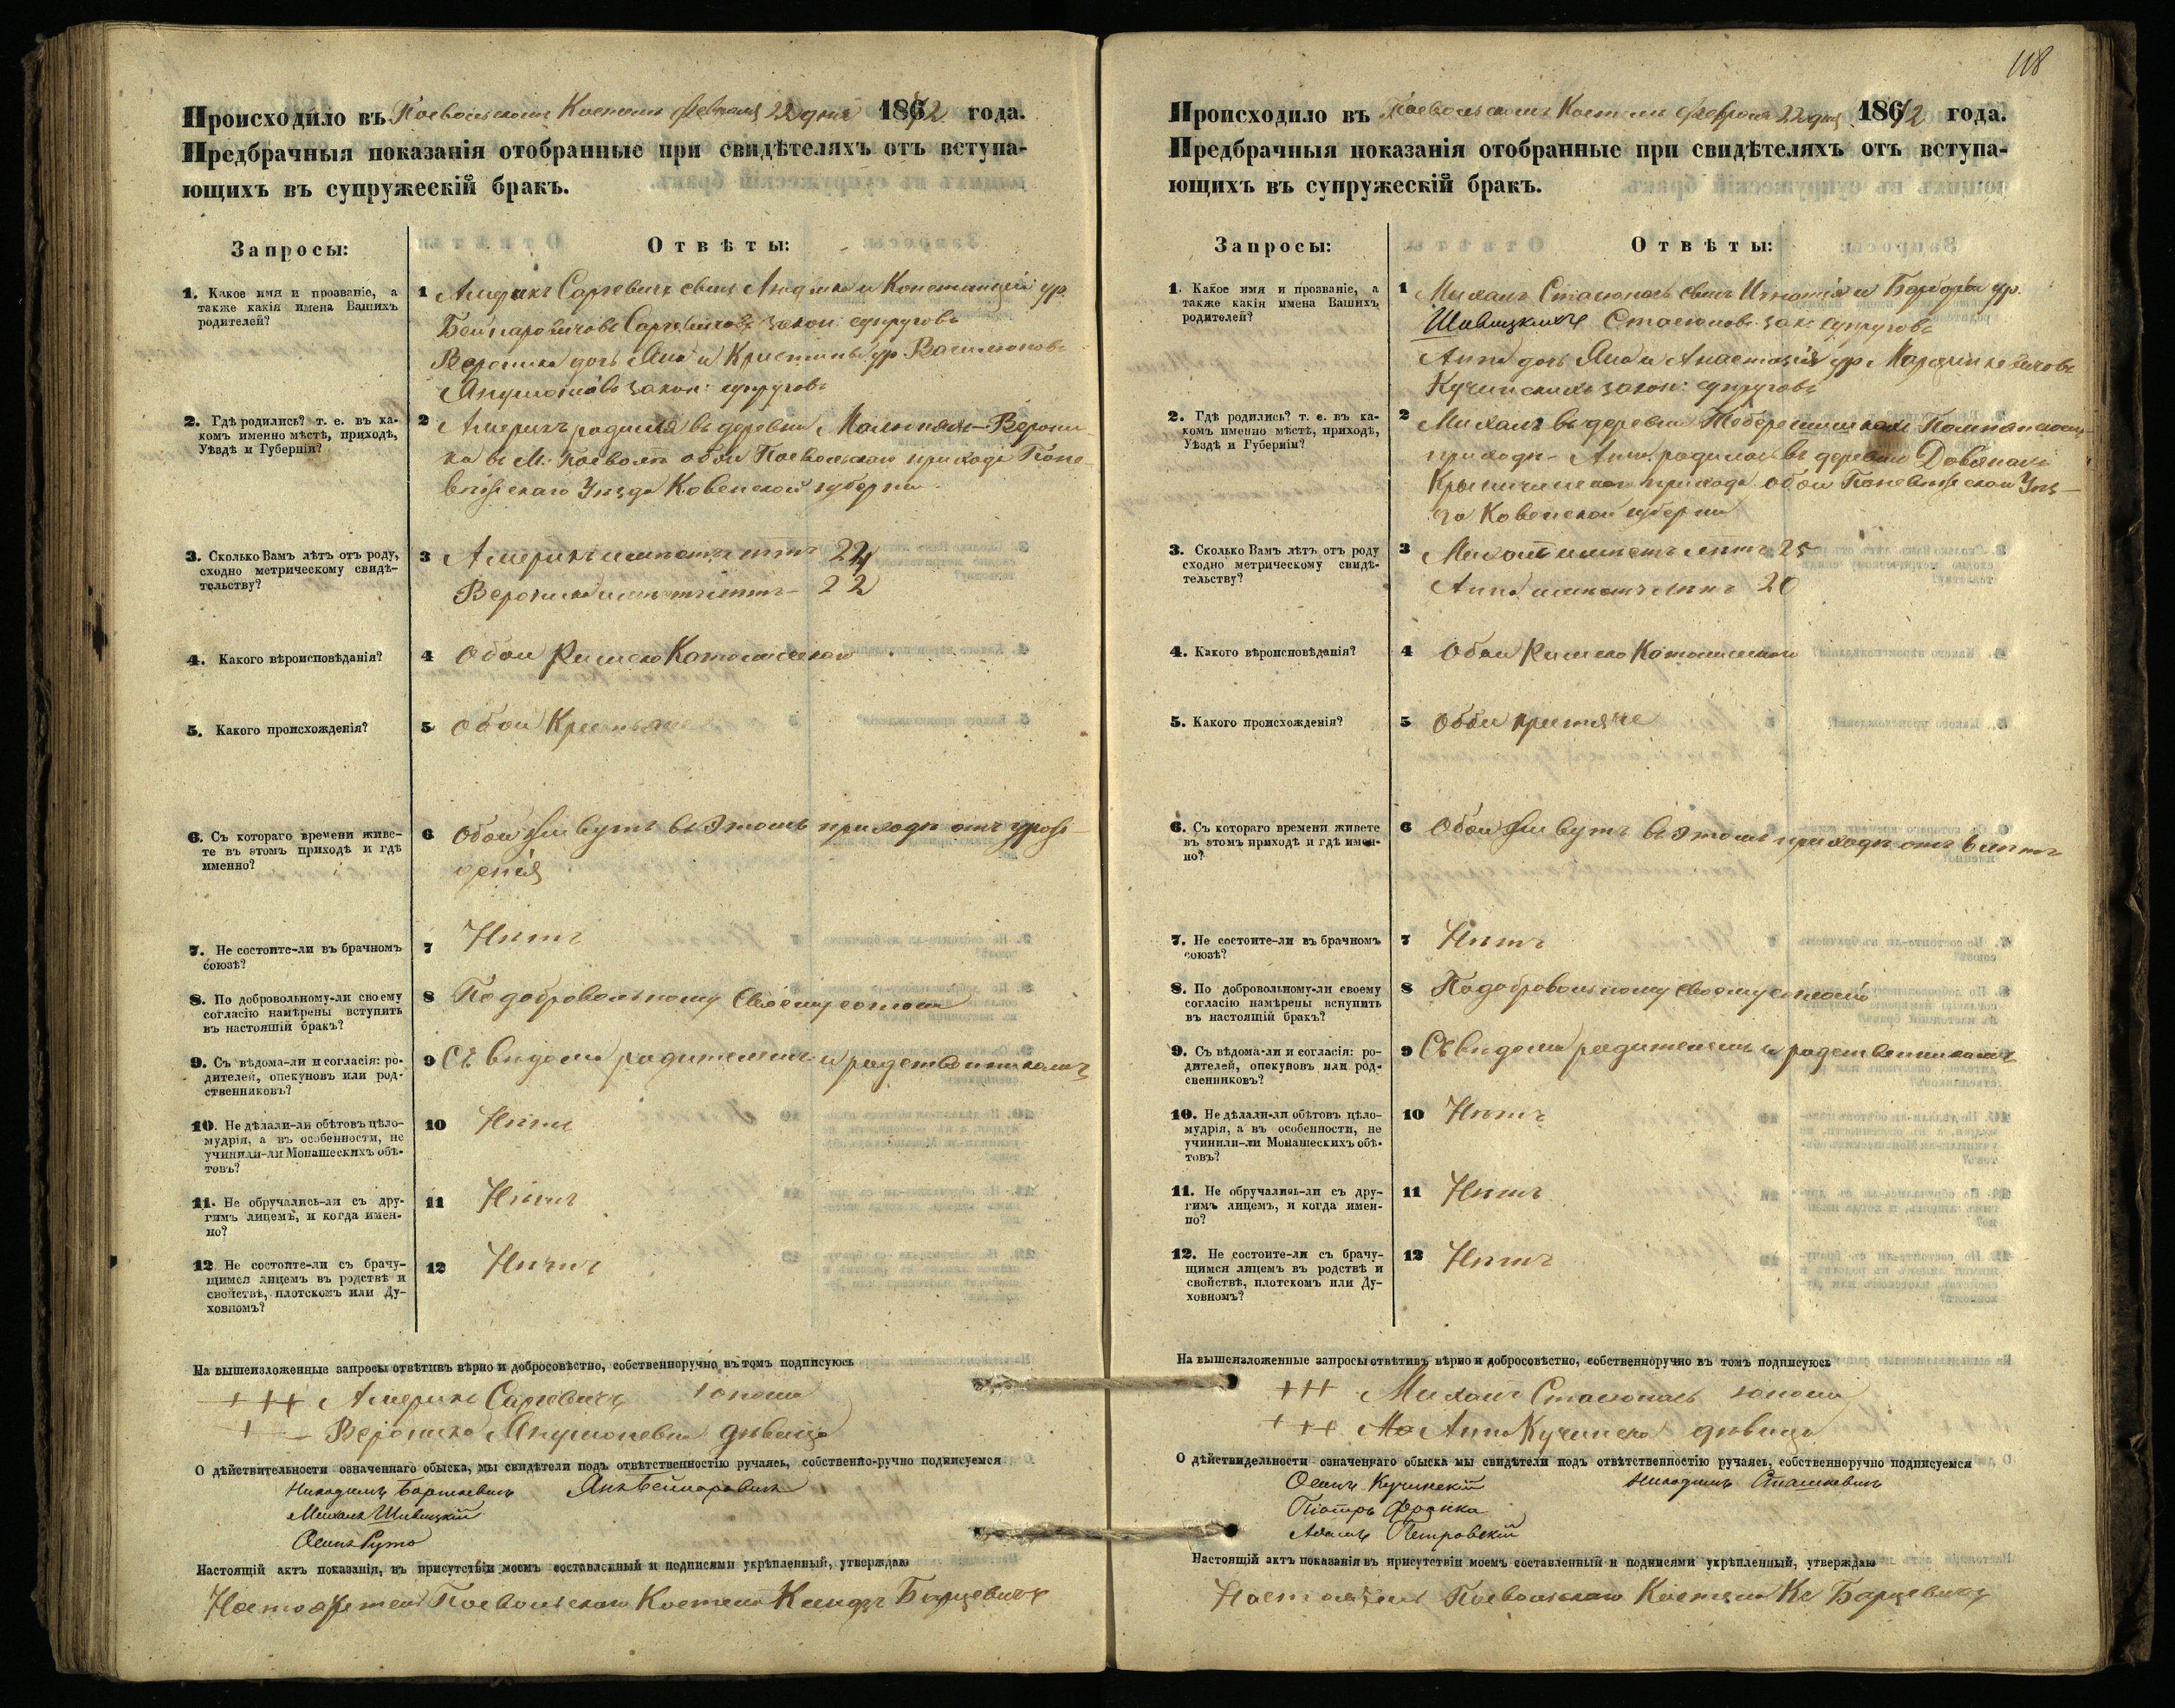 Происходило въ Поевольскомъ Костелѣ Февраля 22 дня 1872 года.
Предбрачныя показанія отобранные при свидѣтеляхъ отъ вступа-
ющихъ въ супружескій бракъ.
Запросы:
Отвѣты:
1. Какое имя и прозваніе, а
также какія имена Вашихъ
родителей?
1 Сынъ и Констанціи ур.
закон: супруговъ
Вероника дочь Яна и Кристины ур.
закон: супруговъ
2. Гдѣ родились? т. е. въ ка-
комъ именно мѣстѣ, приходѣ,
Уѣздѣ и Губерніи?
2 родился въ деревни Верони-
ка въ М. Поеволѣ обои Поевольскаго прихода Поне-
вѣжскаго Уѣзда Ковенской губерніи
3. Сколько Вамъ лѣтъ отъ роду,
сходно метрическому свидѣ-
тельству?
3 имѣетъ лѣтъ 24
Вероника имѣетъ лѣтъ 22
4. Какого вѣроисповѣданія?
4 Обои Римско Католическаго
5. Какого происхожденія?
5 Обои Крестьяне
6. Съ котораго времени живе-
те въ этомъ приходѣ и гдѣ
именно?
6 Обои живутъ въ этомъ приходѣ отъ урож-
денія
7. Не состоите-ли въ брачномъ
союзѣ?
7 Нѣтъ
8. По добровольному-ли своему
согласію намѣрены вступить
въ настоящій бракъ?
8 По добровольному своему согласію
9. Съ вѣдома-ли и согласія: ро-
дителей, опекуновъ или род-
ственниковъ?
9 Съ вѣдома родителей и родственниковъ
10. Не дѣлали-ли обѣтовъ цѣло-
мудрія, а въ особенности, не
учинили-ли Монашескихъ обѣ-
товъ?
10 Нѣтъ
11. Не обручались-ли съ дру-
гимъ лицемъ, и когда имен-
но?
11 Нѣтъ
12. Не состоите-ли съ брачу-
щимся лицемъ въ родствѣ и
свойствѣ, плотскомъ или Ду-
ховномъ?
12 Нѣтъ
На вышеизложенные запросы отвѣтивъ вѣрно и добросовѣстно, собственноручно въ томъ подписуюсь
+++ юноша
+ Вероника дѣвица
О дѣйствительности означеннаго обыска, мы свидѣтели подъ отвѣтственностію ручаясь, собственно-ручно подписуемся
Никодимъ Янъ Бейнаровичъ
Михаилъ Шивицкій
Осипъ
Настоящій актъ показанія, въ присутствіи моемъ составленный и подписями укрѣпленный, утверждаю
Настоятель Поевольскаго Костела Ксендзъ Барцевичъ
118
Происходило въ Поевольскомъ Костелѣ Февраля 22 дня 1872 года.
Предбрачныя показанія отобранные при свидѣтеляхъ отъ вступа-
ющихъ въ супружескій бракъ.
Запросы:
Отвѣты:
1. Какое имя и прозваніе, а
также какія имена Вашихъ
родителей?
1 Михаилъ сынъ Игнатія и Барбары ур.
Шивицкихъ зак: супруговъ
Анна дочь Яна и Анастасіи ур.
Кучинскихъ закон: супруговъ
2. Гдѣ родились? т. е. въ ка-
комъ именно мѣстѣ, приходѣ,
Уѣздѣ и Губерніи?
2 Михаилъ въ деревни
приходѣ - Анна родилась въ деревни
прихода обои Поневѣжскаго Уѣз-
да Ковенской губерніи
3. Сколько Вамъ лѣтъ отъ роду
сходно метрическому свидѣ-
тельству?
3 Михаилъ имѣетъ лѣтъ 25
Анна имѣетъ лѣтъ 20
4. Какого вѣроисповѣданія?
4 Обои Римско Католическаго
5. Какого происхожденія?
5 Обои крестьяне
6. Съ котораго времени живете
въ этомъ приходѣ и гдѣ имен-
но?
6 Обои живутъ въ этомъ приходѣ отъ 6 лѣтъ
7. Не состоите-ли въ брачномъ
союзѣ?
7 Нѣтъ
8. По добровольному-ли своему
согласію намѣрены вступить
въ настоящій бракъ?
8 По добровольному своему согласію
9. Съ вѣдома-ли и согласія: ро-
дителей, опекуновъ или род-
свенниковъ?
9 Съ вѣдома родителей и родственниковъ
10. Не дѣлали-ли обѣтовъ цѣло-
мудрія, а въ особенности, не
учинили-ли Монашескихъ обѣ-
товъ?
10 Нѣтъ
11. Не обручались-ли съ дру-
гимъ лицемъ, и когда имен-
но?
11 Нѣтъ
12. Не состоите-ли съ брачу-
щимся лицемъ въ родствѣ и
свойствѣ, плотскомъ или Ду-
ховномъ?
12 Нѣтъ
На вышеизложенные запросы отвѣтивъ вѣрно и добросовѣстно, собственноручно въ томъ подписуюсь
+++ Михаилъ юноша
+++ Анна Кучинска дѣвица
О дѣйствидельности означеннаго обыска мы свидѣтели подъ отвѣтственностію ручаясь, собственноручно подписуемся
Осипъ Кучинскій Никодимъ Сташкевичъ
Піотръ
Адамъ Петровскій
Настоящій актъ показанія въ присутствіи моемъ составленный и подписями укрѣпленный, утверждаю
Настоятель Поевольскаго Костела Кс Барцевичъ